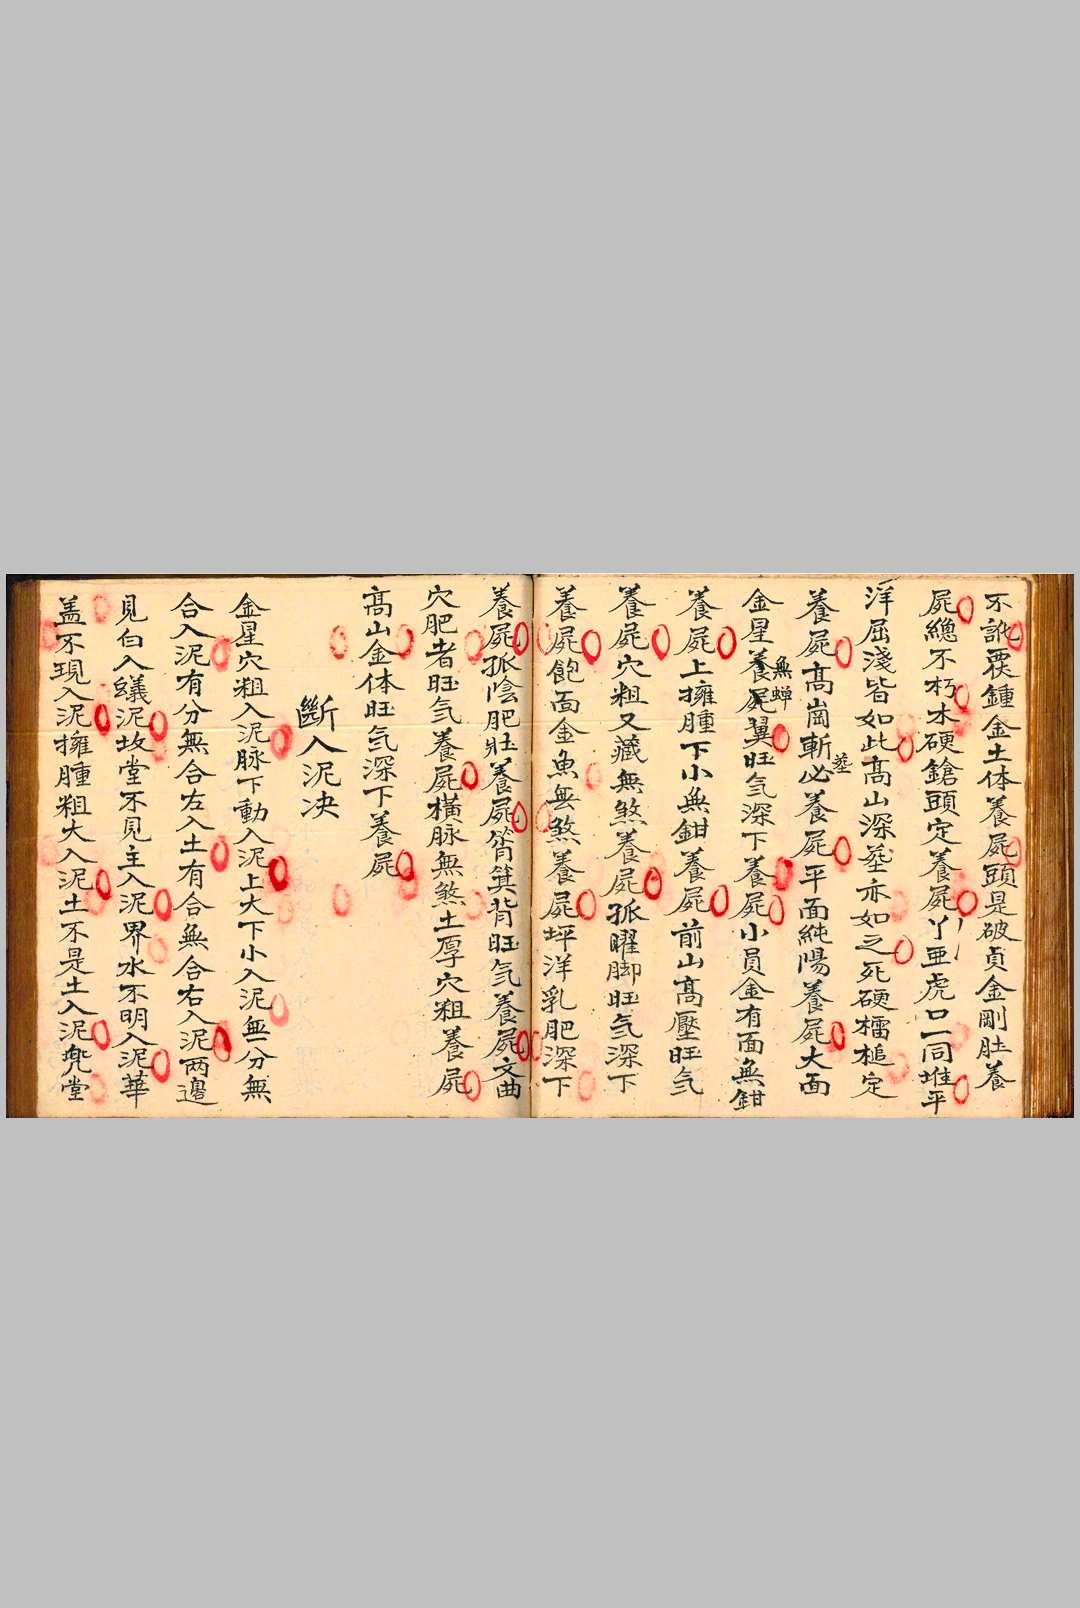 不訛覆鍾金土体養屍頭是破貞金剛肚養
屍總不朽木硬鎗頭定養屍丫亜虎口一同堆平
洋屈淺皆如此髙山深塟亦如之死硬檑槌定
養屍髙崗斬必塟養屍平面純陽養屍大面
金星養屍無蟬翼旺気深下養屍小員金有面無鉗
養屍上擁腫下小無鉗養屍前山髙壓旺気
養屍穴粗又藏無煞養屍孤曜脚旺気深下
養屍飽面金魚無煞養屍坪洋乳肥深下
養屍孤陰肥壯養屍筲箕背旺気養屍文曲
穴肥者旺気養屍橫脉無煞土厚穴粗養屍
髙山金体旺気深下養屍
斷入泥决
金星穴粗入泥脉下動入泥上大下小入泥無分無
合入泥有分無合右入土有合無合右入泥两邉
見白入蟻泥坟堂不見主入泥界水不明入泥華
盖不現入泥擁腫粗大入泥土不是土入泥兠堂